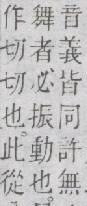 音義皆同許無
舞者必振動也。
作切切也。此從